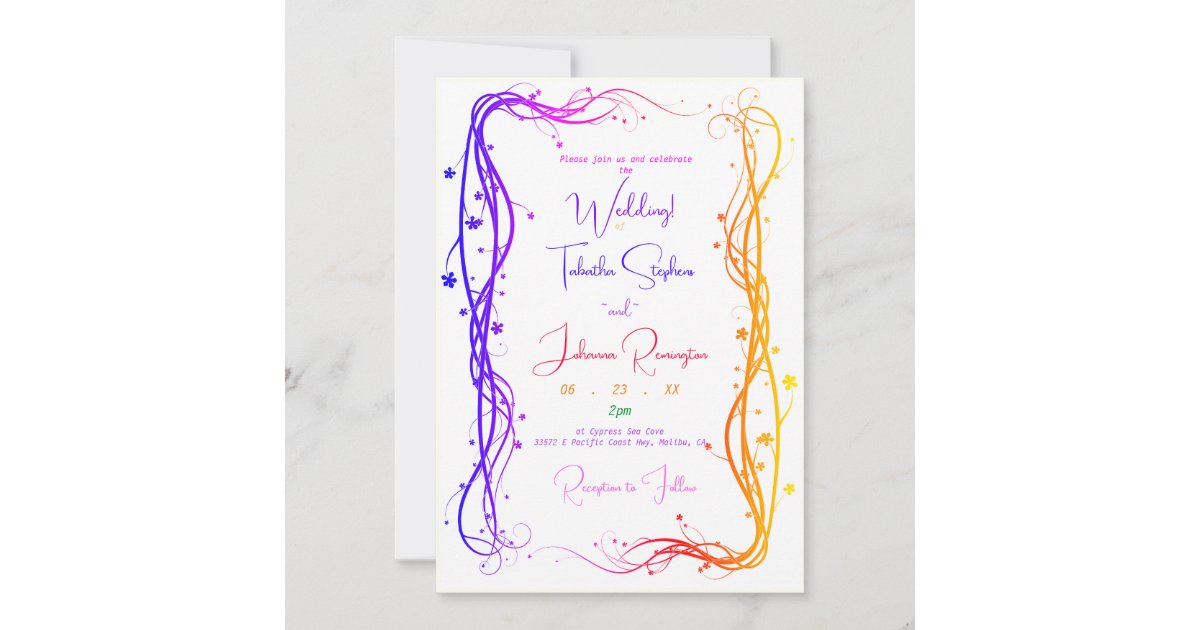 Please join us and celebrate
the
Wedding!
of
Tabatha Stephens
~and~
Johanna Remington
06 . 23 . XX
2pm
at Cypress Sea Cove
33572 E Pacific Coast Hwy, Malibu, CA
Reception to Follow